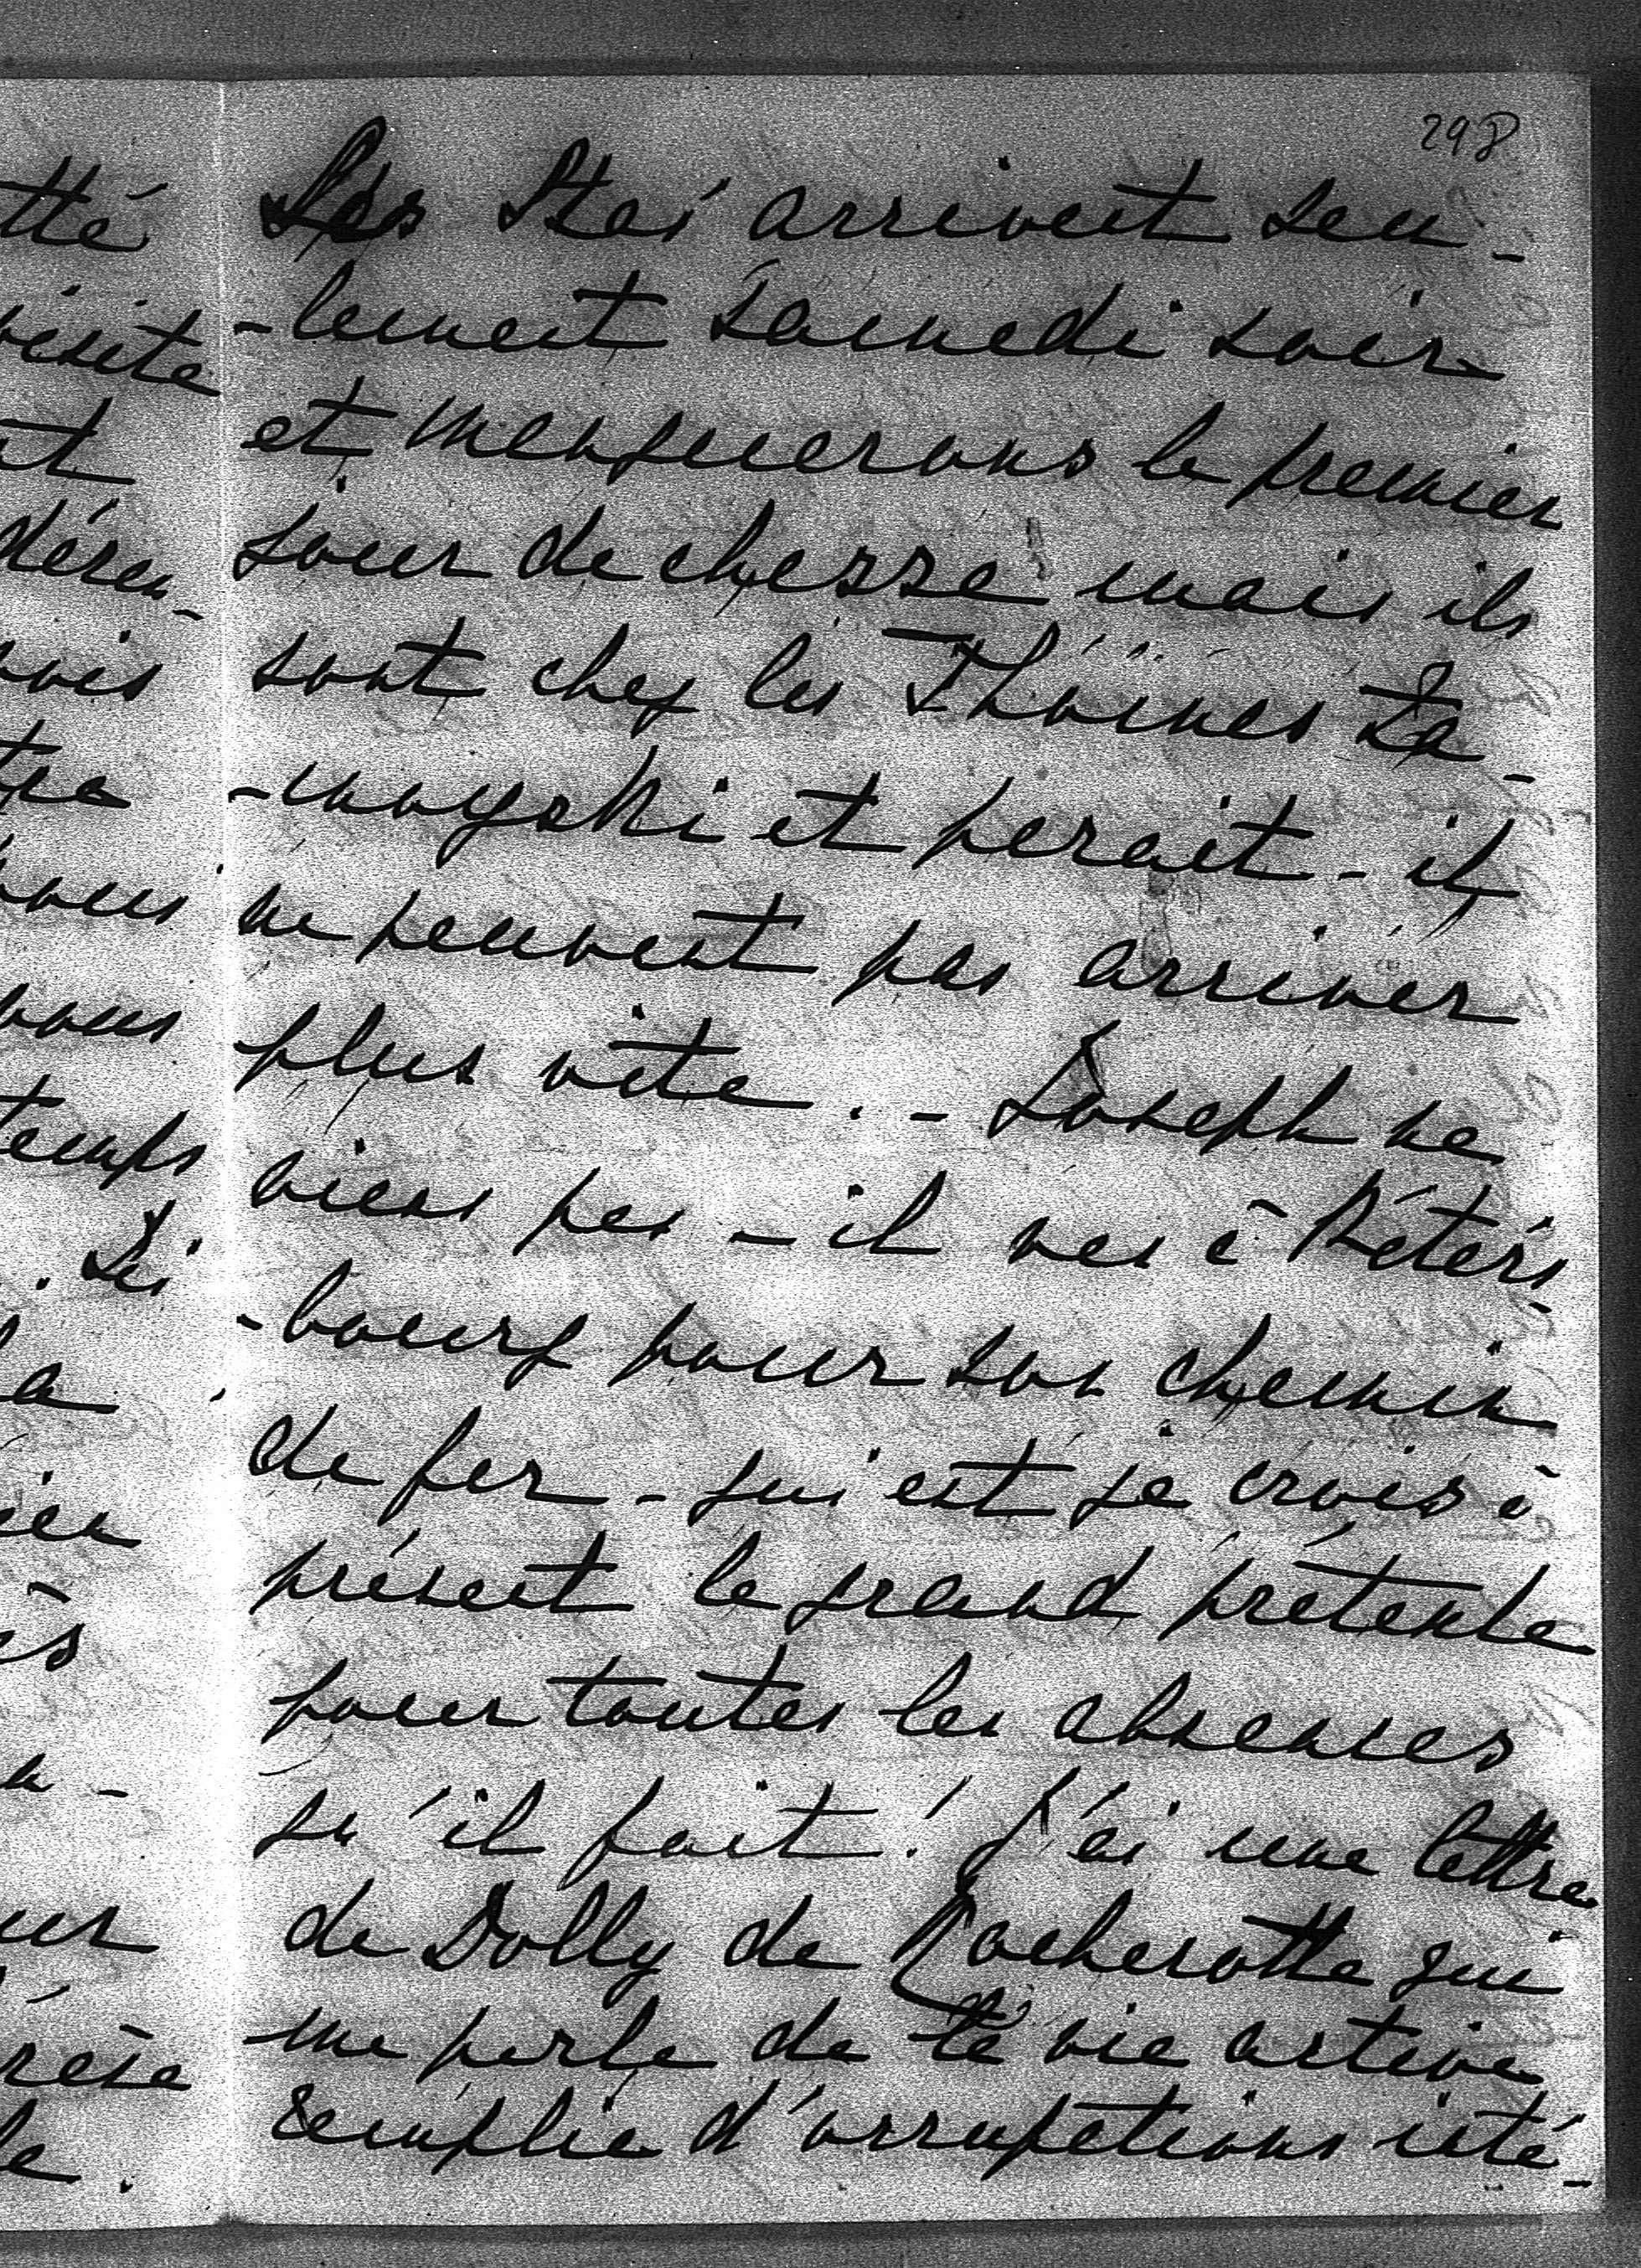 298
Les Stas arrivent seu-
-lement samedi soir
et manquerons le premier
jour de chasse mais ils
sont chez les Thomas Za-
-moyski et parait-il
ne peuvent pas arriver
plus vite. - Joseph ne
viens pas - il vas à Péters
-bourg pour son chemin
de fer - qui est je crois à
présent le grand prétexte
pour toutes les absences
qu'il fait! J'ai une lettre
de Dolly de qui
me parle de ta vie active
remplie d'occupations inté-
tté
visite
nt
temps
. Si